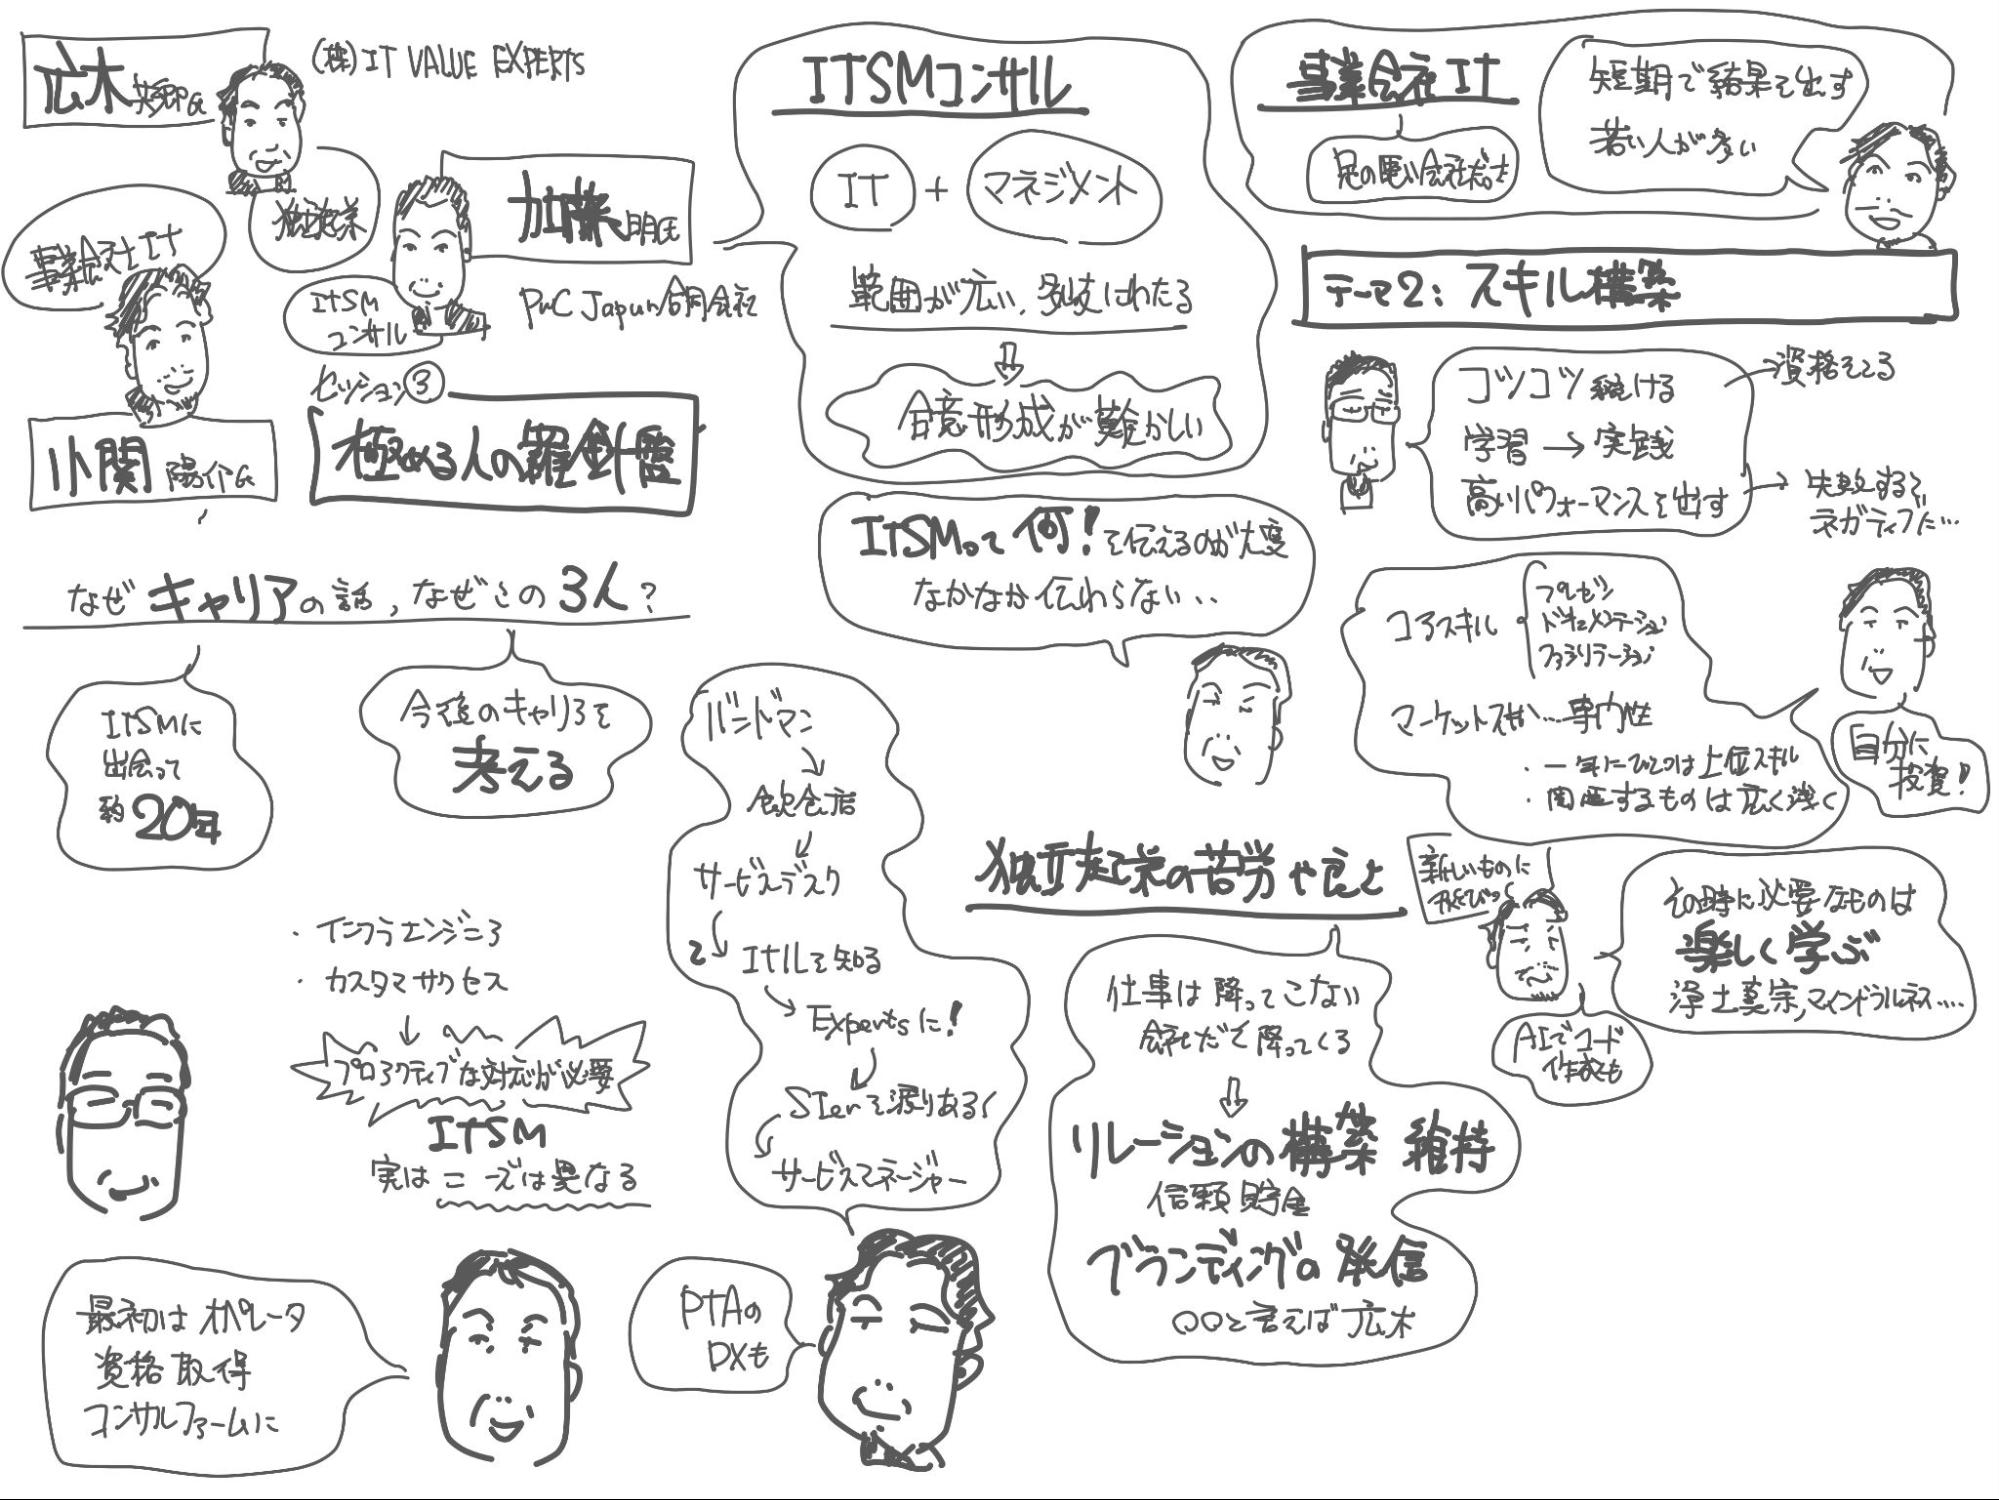 広木
(株)IT VALUE EXPERTS
独立起業
加藤 明氏
ITSM
コンサル
PwC Japan合同会社
事業会社IT
小関 陽介氏
セッション③
極める人の羅針盤
なぜキャリアの話，なぜこの3人？
ITSMに
出会って
約20年
今後のキャリアを
考える
・インフラエンジニア
・カスタマサクセス
プロアクティブな対応が必要
ITSM
実はニーズは異なる
最初はオペレータ
資格取得
コンサルファームに
バンドマン
飲食店
サービスデスク
ITILを知る
Expertsに!
SIerを渡りあるく
サービスマネージャー
PTAの
DXも
ITSMコンサル
IT + マネジメント
範囲が広い，多岐にわたる
合意形成が難かしい
ITSMって何!を伝えるのが大変
なかなか伝わらない..
独立起業の苦労や良さ
仕事は降ってこない
会社だと降ってくる
リレーションの構築 維持
信頼貯金
ブランディングの発信
〇〇と言えば広木
事業会社IT
足の速い会社だと
短期で結果を出す
若い人が多い
テーマ2: スキル構築
コツコツ続ける
資格をとる
学習→実践
高いパフォーマンスを出す
失敗すると
ネガティブに…
コアスキル
プレゼン
ドキュメンテーション
ファシリテーション
マーケットスキル…専門性
・一年にひとつは上位スキル
・関連するものは広く浅く
自分に
投資!
新しいものに
飛びつく
その時に必要なものは
楽しく学ぶ
浄土真宗,マインドフルネス….
AIでコード
作成も